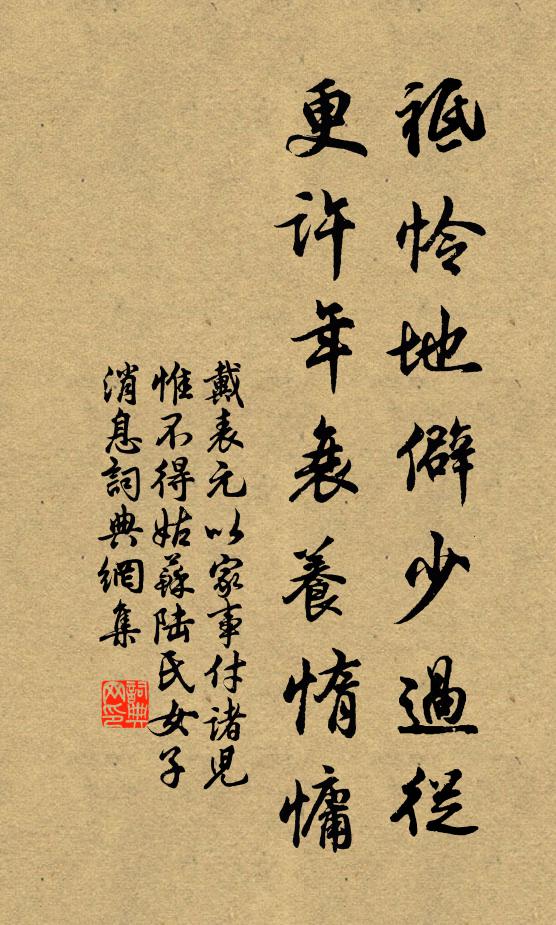 祗怜地僻少過從
更許年衰養惰慵
戴表元以家事付諸兒
惟不得姑蘇陸氏女子
消息詞典網集
詞典网印